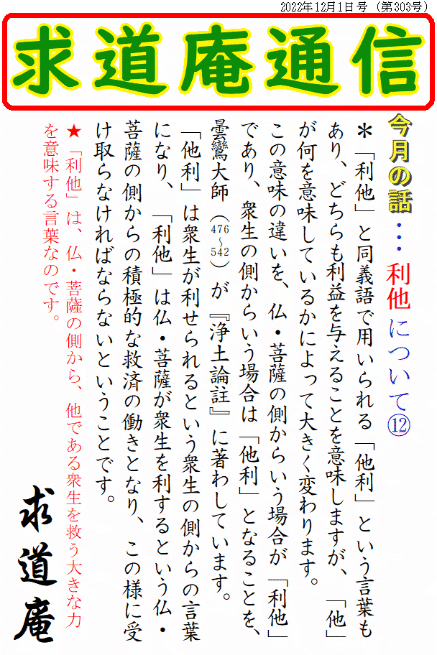 2022年12月1日号（第303号）
求道庵通信
今月の話…利他について⑫
＊「利他」と同義語で用いられる「他利」という言葉も
あり、どちらも利益を与えることを意味しますが、「他」
が何を意味しているかによって大きく変わります。
この意味の違いを、仏・菩薩の側からいう場合が「利他」
であり、衆生の側からいう場合は「他利」となることを、
曇鸞大師（476～542）が『浄土論註』に著わしています。
「他利」は衆生が利せられるという衆生の側からの言葉
になり、「利他」は仏・菩薩が衆生を利するという仏・
菩薩の側からの積極的な救済の働きとなり、この様に受
け取らなければならないということです。
★「利他」は、仏・菩薩の側から、他である衆生を救う大きな力
を意味する言葉なのです。
求道庵